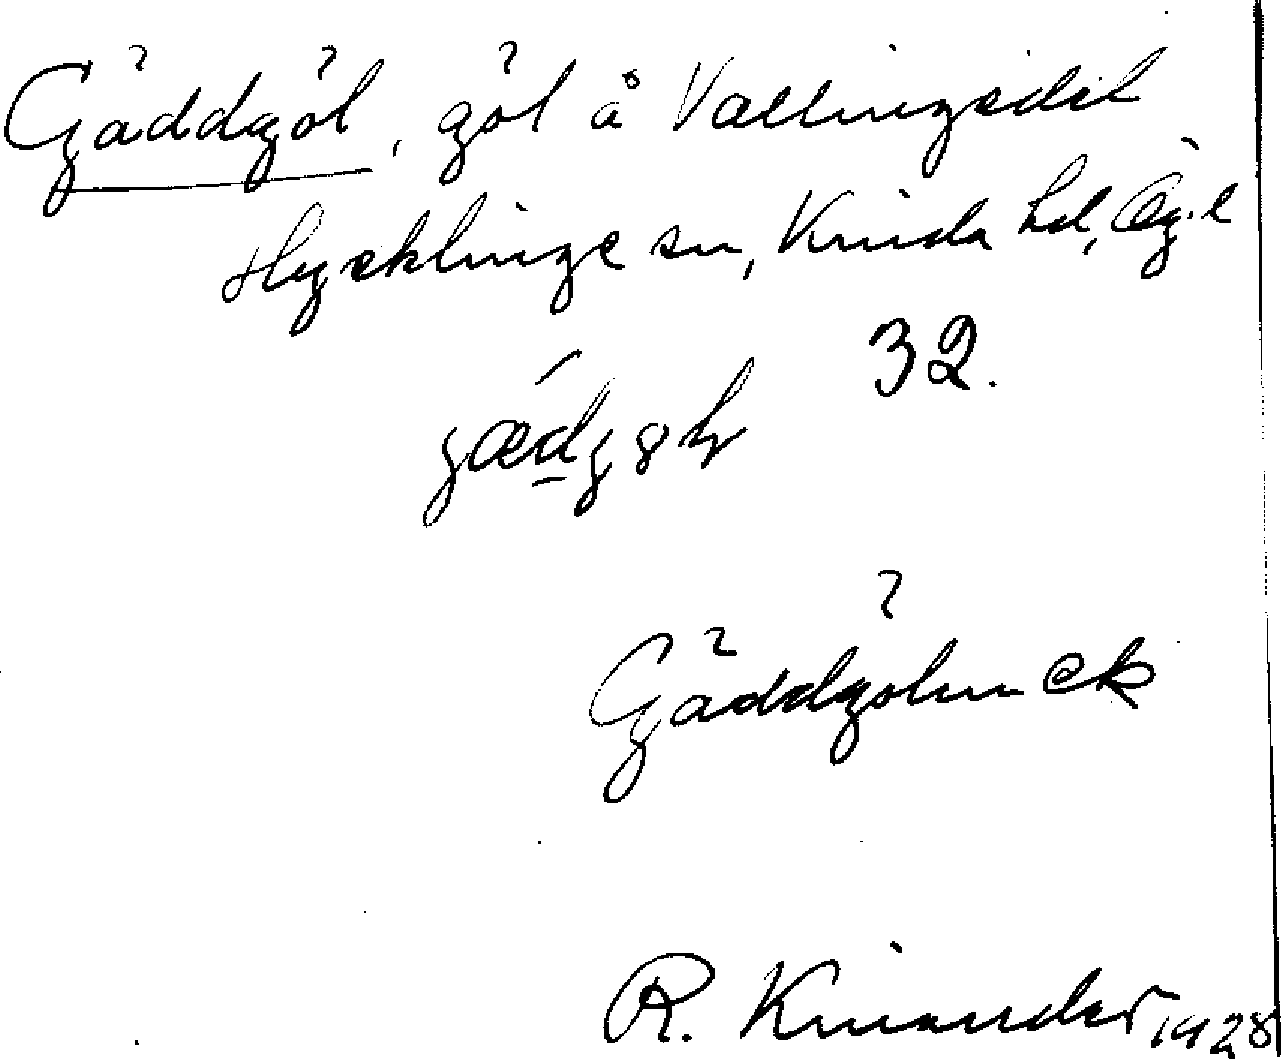 Gäddgöl, göl å Vallingedal
Hycklinge sn, Kinda hd, Ög. l
32.
Gäddgölen ek
R. Kinander 1928